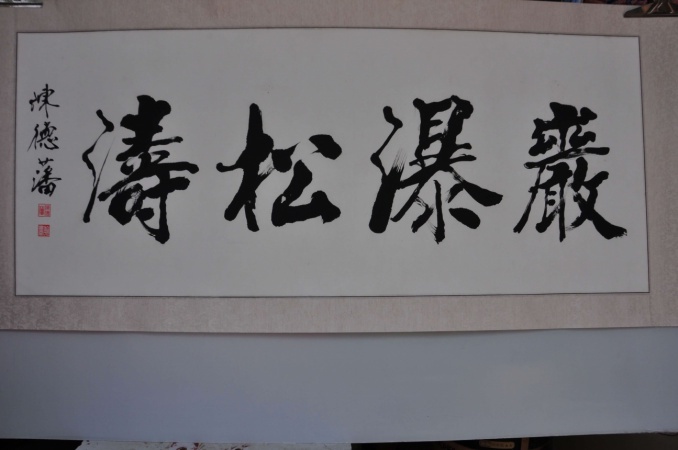 巖瀑松濤
陳德藩